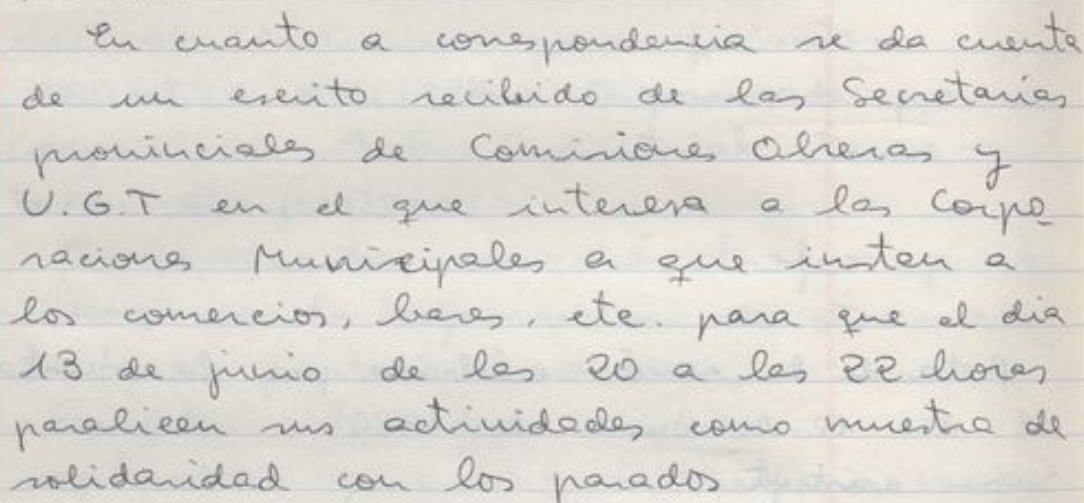 En cuanto a correspondencia se da cuenta
de un escrito recibido de las Secretarias
provinciales de Comisiones Obreras y
U.G.T en el que interesa a las Corpo
raciones Municipales a que insten a
los comercios, bares, etc. para que el dia
13 de junio de las 20 a las 22 horas
paralicen sus actividades como muestra de
solidaridad con los parados